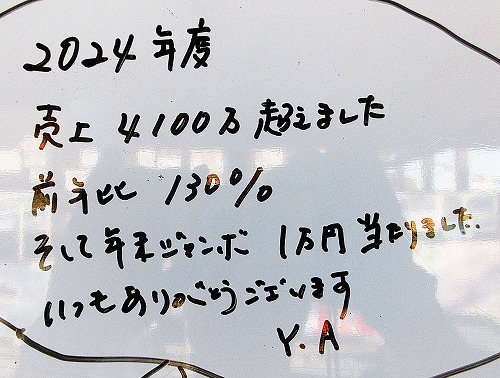 2024年度
売上 4100万 超えました
前年比 130%
そして年末ジャンボ 1万円 当たりました.
いつもありがとうございます
Y.A